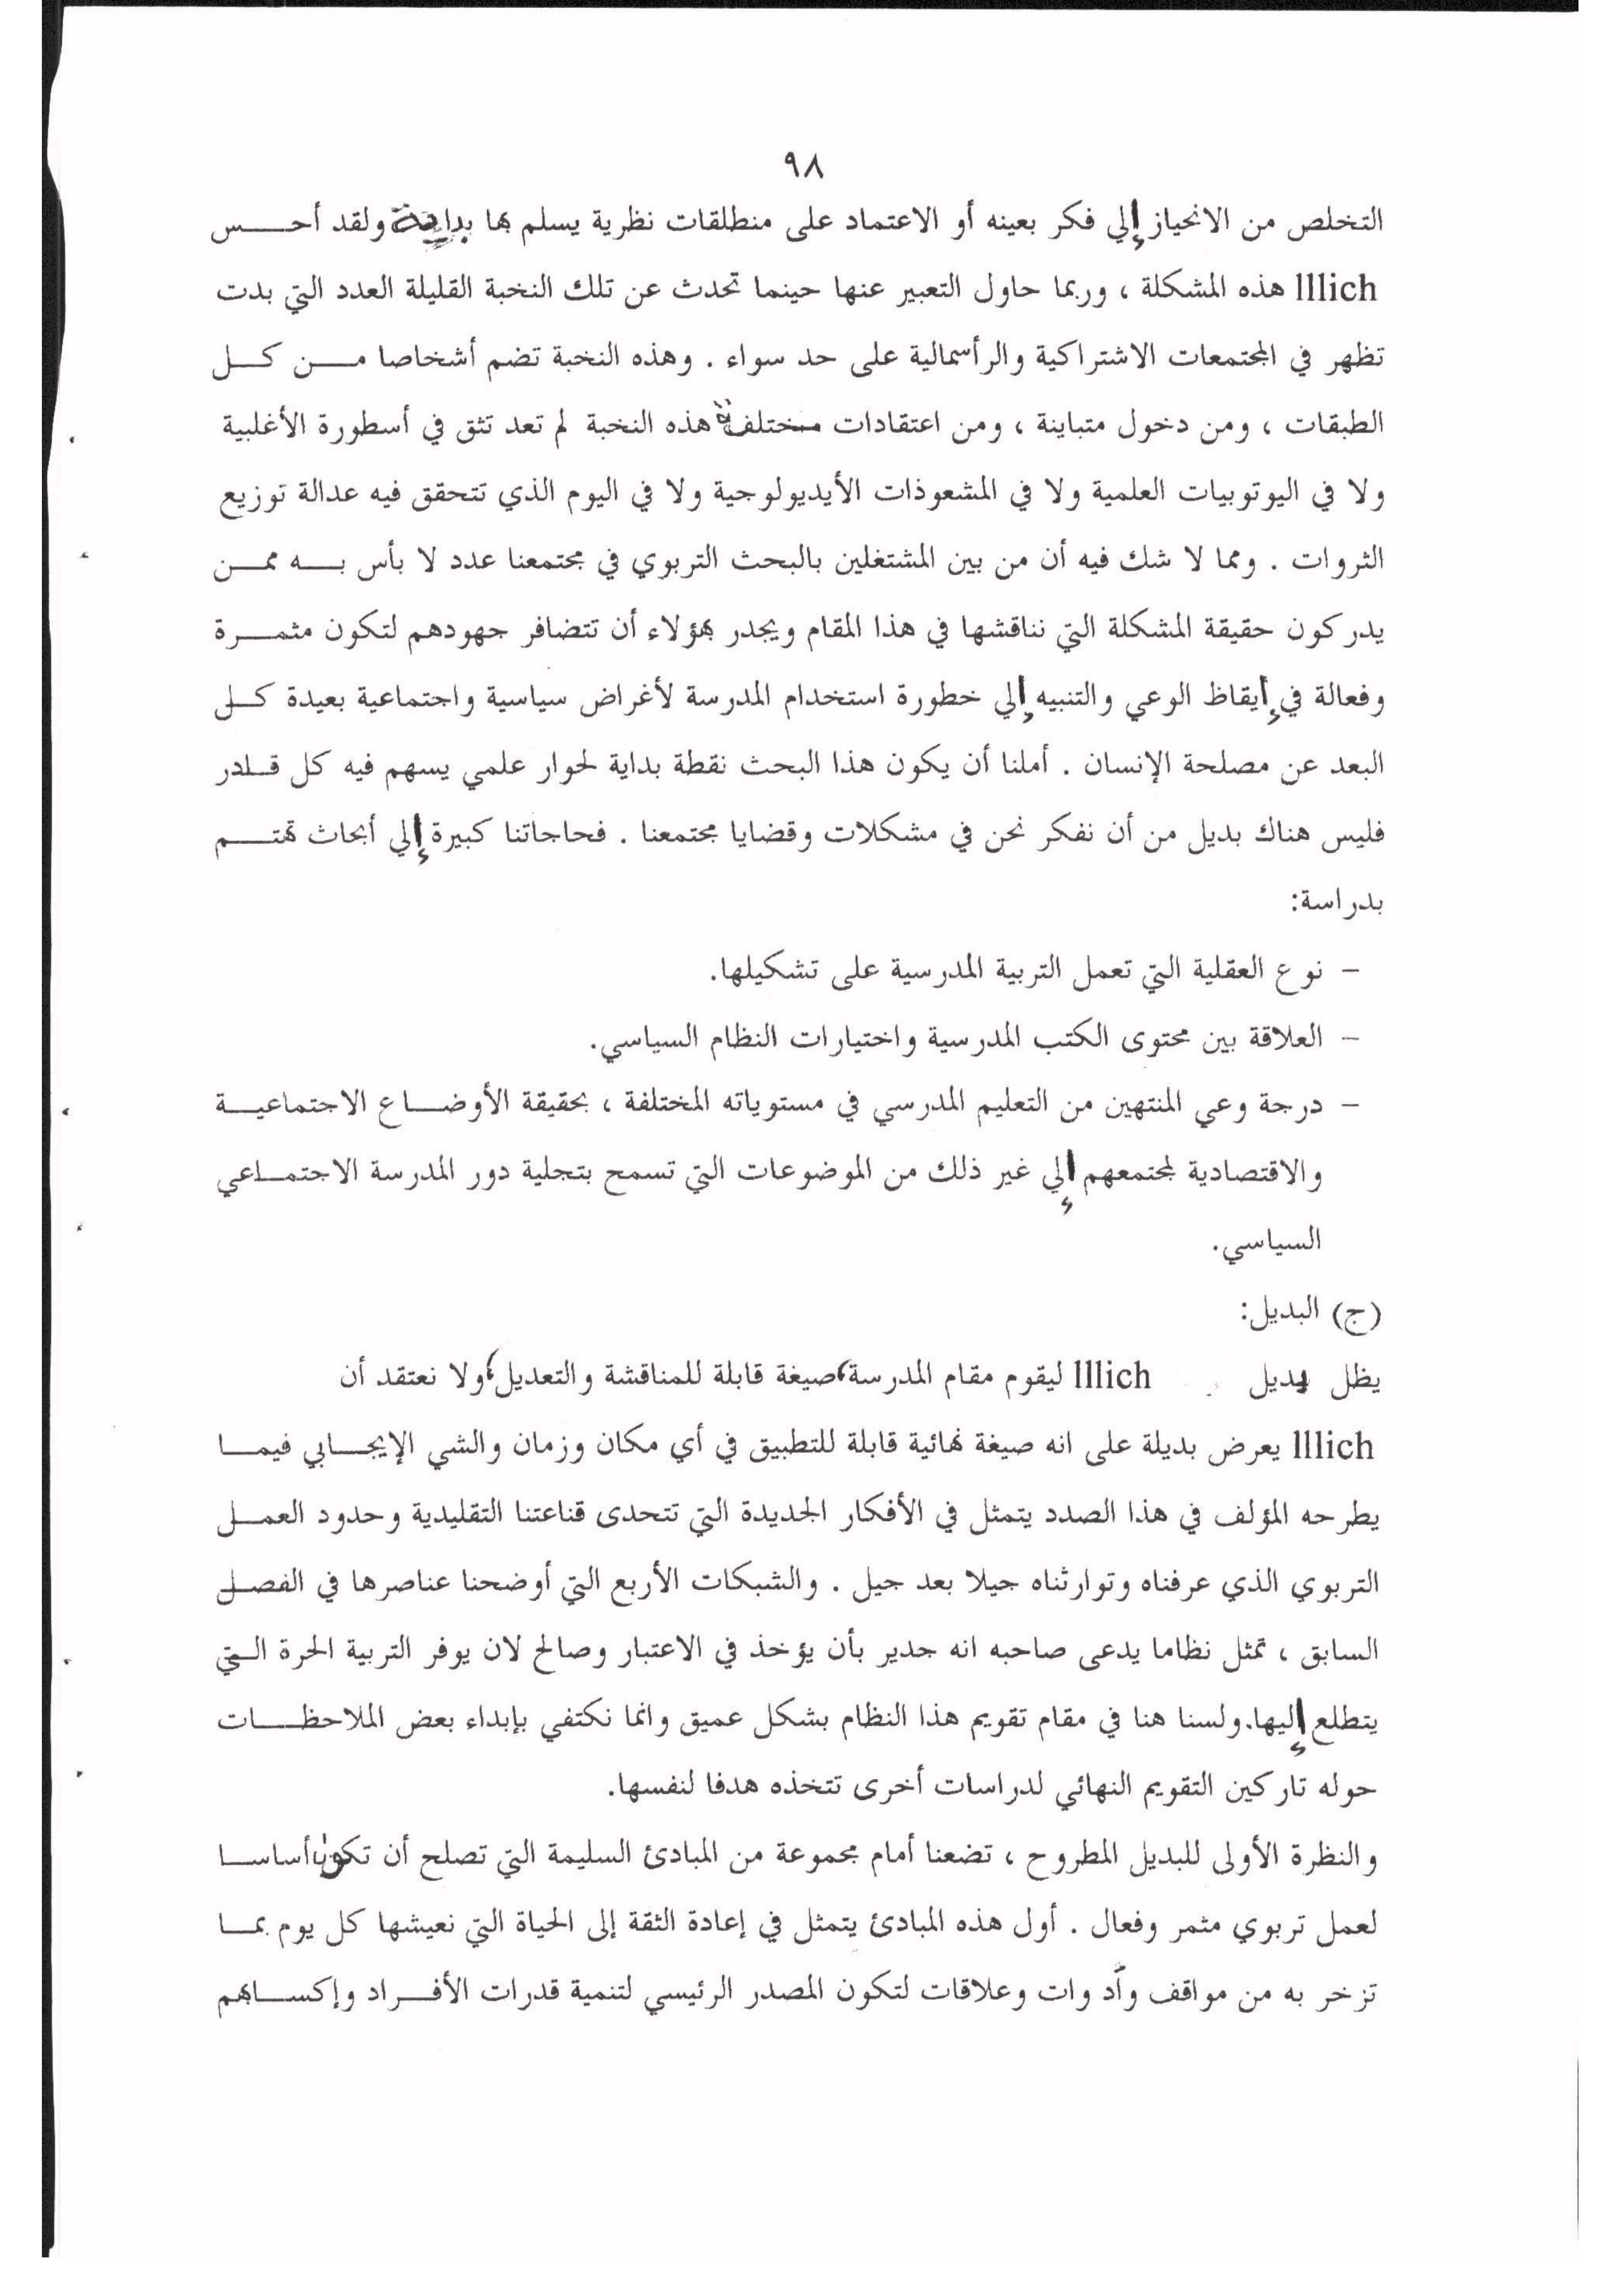 ٩٨
التخلص من الانحياز إلي فكر بعينه أو الاعتماد على منطلقات نظرية يسلم بها بداية ولقد أحس
Illich هذه المشكلة ، وربما حاول التعبير عنها حينما تحدث عن تلك النخبة القليلة العدد التي بدت
تظهر في المجتمعات الاشتراكية والرأسمالية على حد سواء . وهذه النخبة تضم أشخاصا من كل
الطبقات ، ومن دخول متباينة ، ومن اعتقادات مختلفة هذه النخبة لم تعد تثق في أسطورة الأغلبية
ولا في اليوتوبيات العلمية ولا في المشعوذات الأيديولوجية ولا في اليوم الذي تتحقق فيه عدالة توزيع
الثروات . ومما لا شك فيه أن من بين المشتغلين بالبحث التربوي في مجتمعنا عدد لا بأس به ممن
يدركون حقيقة المشكلة التي نناقشها في هذا المقام ويجدر بهؤلاء أن تتضافر جهودهم لتكون مثمرة
وفعالة في إيقاظ الوعي والتنبيه إلي خطورة استخدام المدرسة لأغراض سياسية واجتماعية بعيدة كل
البعد عن مصلحة الإنسان . أملنا أن يكون هذا البحث نقطة بداية لحوار علمي يسهم فيه كل قادر
فليس هناك بديل من أن نفكر نحن في مشكلات وقضايا مجتمعنا . فحاجاتنا كبيرة إلي أبحاث تهتم
بدراسة:
– نوع العقلية التي تعمل التربية المدرسية على تشكيلها.
– العلاقة بين محتوى الكتب المدرسية واختيارات النظام السياسي.
– درجة وعي المنتهين من التعليم المدرسي في مستوياته المختلفة ، بحقيقة الأوضاع الاجتماعية
والاقتصادية لمجتمعهم إلي غير ذلك من الموضوعات التي تسمح بتجلية دور المدرسة الاجتماعي
السياسي.
(ج) البديل:
يظل بديل Illich ليقوم مقام المدرسة، صيغة قابلة للمناقشة والتعديل، ولا نعتقد أن
Illich يعرض بديلة على انه صيغة نهائية قابلة للتطبيق في أي مكان وزمان والشي الإيجابي فيما
يطرحه المؤلف في هذا الصدد يتمثل في الأفكار الجديدة التي تتحدى قناعتنا التقليدية وحدود العمل
التربوي الذي عرفناه وتوارثناه جيلا بعد جيل . والشبكات الأربع التي أوضحنا عناصرها في الفصل
السابق ، تمثل نظاما يدعى صاحبه انه جدير بأن يؤخذ في الاعتبار وصالح لان يوفر التربية الحرة التي
يتطلع إليها. ولسنا هنا في مقام تقويم هذا النظام بشكل عميق وانما نكتفي بإبداء بعض الملاحظات
حوله تاركين التقويم النهائي لدراسات أخرى تتخذه هدفا لنفسها.
والنظرة الأولى للبديل المطروح ، تضعنا أمام مجموعة من المبادئ السليمة التي تصلح أن تكون أساسا
لعمل تربوي مثمر وفعال . أول هذه المبادئ يتمثل في إعادة الثقة إلى الحياة التي نعيشها كل يوم بما
تزخر به من مواقف وأدوات وعلاقات لتكون المصدر الرئيسي لتنمية قدرات الأفراد وإكسابهم